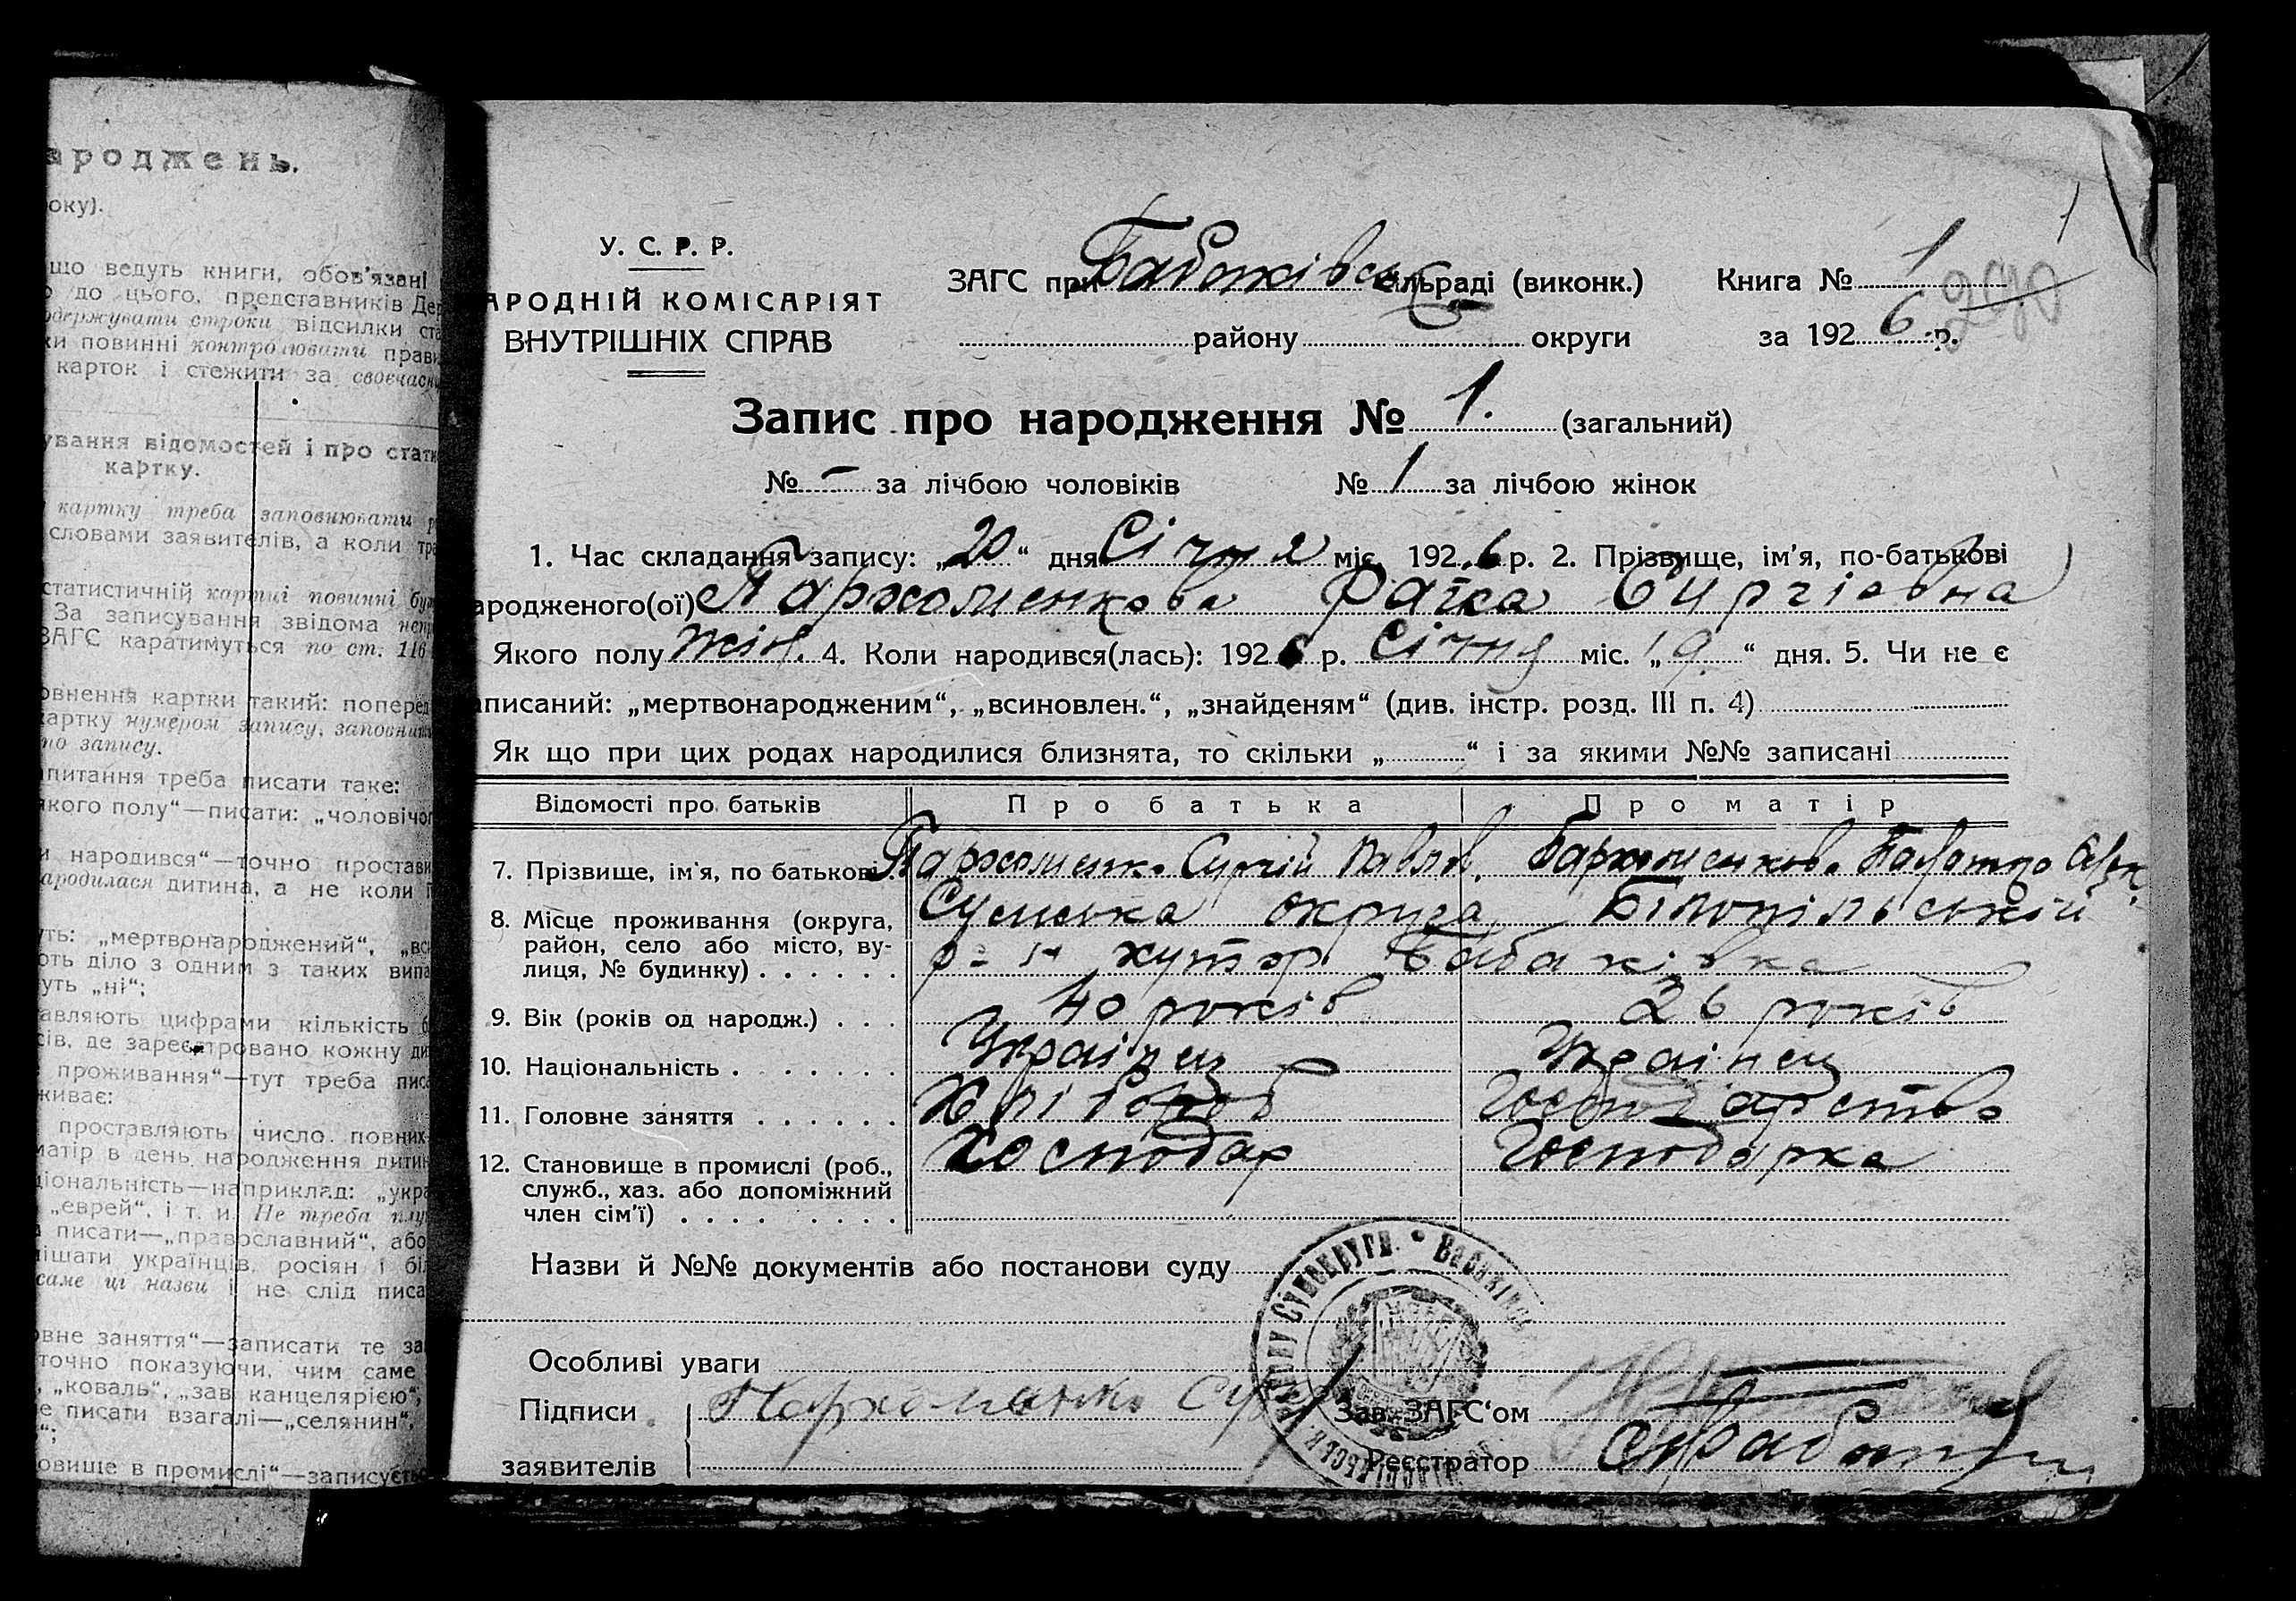 ароджень.
оку).
що ведуть книги, обов'язані
до цього, представників Дер
одержувати строки відсилки ста
ки повинні контролювати прави
карток і стежити за своєчасн
ування відомостей і про стати
картку.
картку треба заповнювати р
словами заявителів, а коли тра
статистичній картці повинні бу
За записування звідома непр
ЗАГС каратимуться по ст. 116
овнення картки такий: поперед
картку нумером запису, заповнити
по запису.
питання треба писати таке:
якого полу“—писати: „чоловічог
и народився“—точно простави
народилася дитина, а не коли ї
уть: „мертвонароджений“, „вси
ють діло з одним з таких випа
уть „ні“;
авляють цифрами кількість б
сів, де зареєстровано кожну ди
проживання“—тут треба писа
живає:
проставляють число повних
матір в день народження дитин
ціональність—наприклад: „укра
„еврей“, і т. и. Не треба плу
писати—„православний“, або
мішати українців, росіян і біл
саме ці назви і не слід писа
овне заняття“—записати те за
точно показуючи, чим саме
„коваль“, „зав канцелярією“,
не писати взагалі—„селянин“,
“;
овище в промислі“—записуєтьс
У. С. Р. Р.
АРОДНІЙ КОМІСАРІЯТ
ВНУТРІШНІХ СПРАВ
ЗАГС при Бабаківськ ільраді (виконк.)
району округи
Книга № 1
290
1
за 1926 р.
Запис про народження № 1. (загальний)
№ – за лічбою чоловіків № 1 за лічбою жінок
1. Час складання запису: „20“ дня Січня міс. 1926 р. 2. Прізвище, ім'я, по-батькові
ародженого(ої) Пархоменкова Раїса Сиргіевна
Якого полу жін. 4. Коли народився(лась): 1926 р. Січня міс. „19“ дня. 5. Чи не є
аписаний: „мертвонародженим“, „всиновлен.“, „знайденям“ (див. інстр. розд. III п. 4)
Як що при цих родах народилися близнята, то скільки „ “ і за якими №№ записані
Відомості про батьків Про батька Про матір
7. Прізвище, ім'я, по батькові Пархоменко Сургій Павлов. Пархоменкова
8. Місце проживання (округа, Сумська округа Білопільський
район, село або місто, ву- р-н хутор Бабаківка
лиця, № будинку)
9. Вік (років од народж.) 40 років 26 років
10. Національність Українец Українец
11. Головне заняття Хлібороб Господарство
12. Становище в промислі (роб., Господар Господарка
служб., хаз. або допоміжний
член сім'ї)
Назви й №№ документів або постанови суду
Особливі уваги
Підписи Пархоменко Сур Зав. ЗАГС‘ом
заявителів Реєстратор
Сумокруги. • Бабаківсь